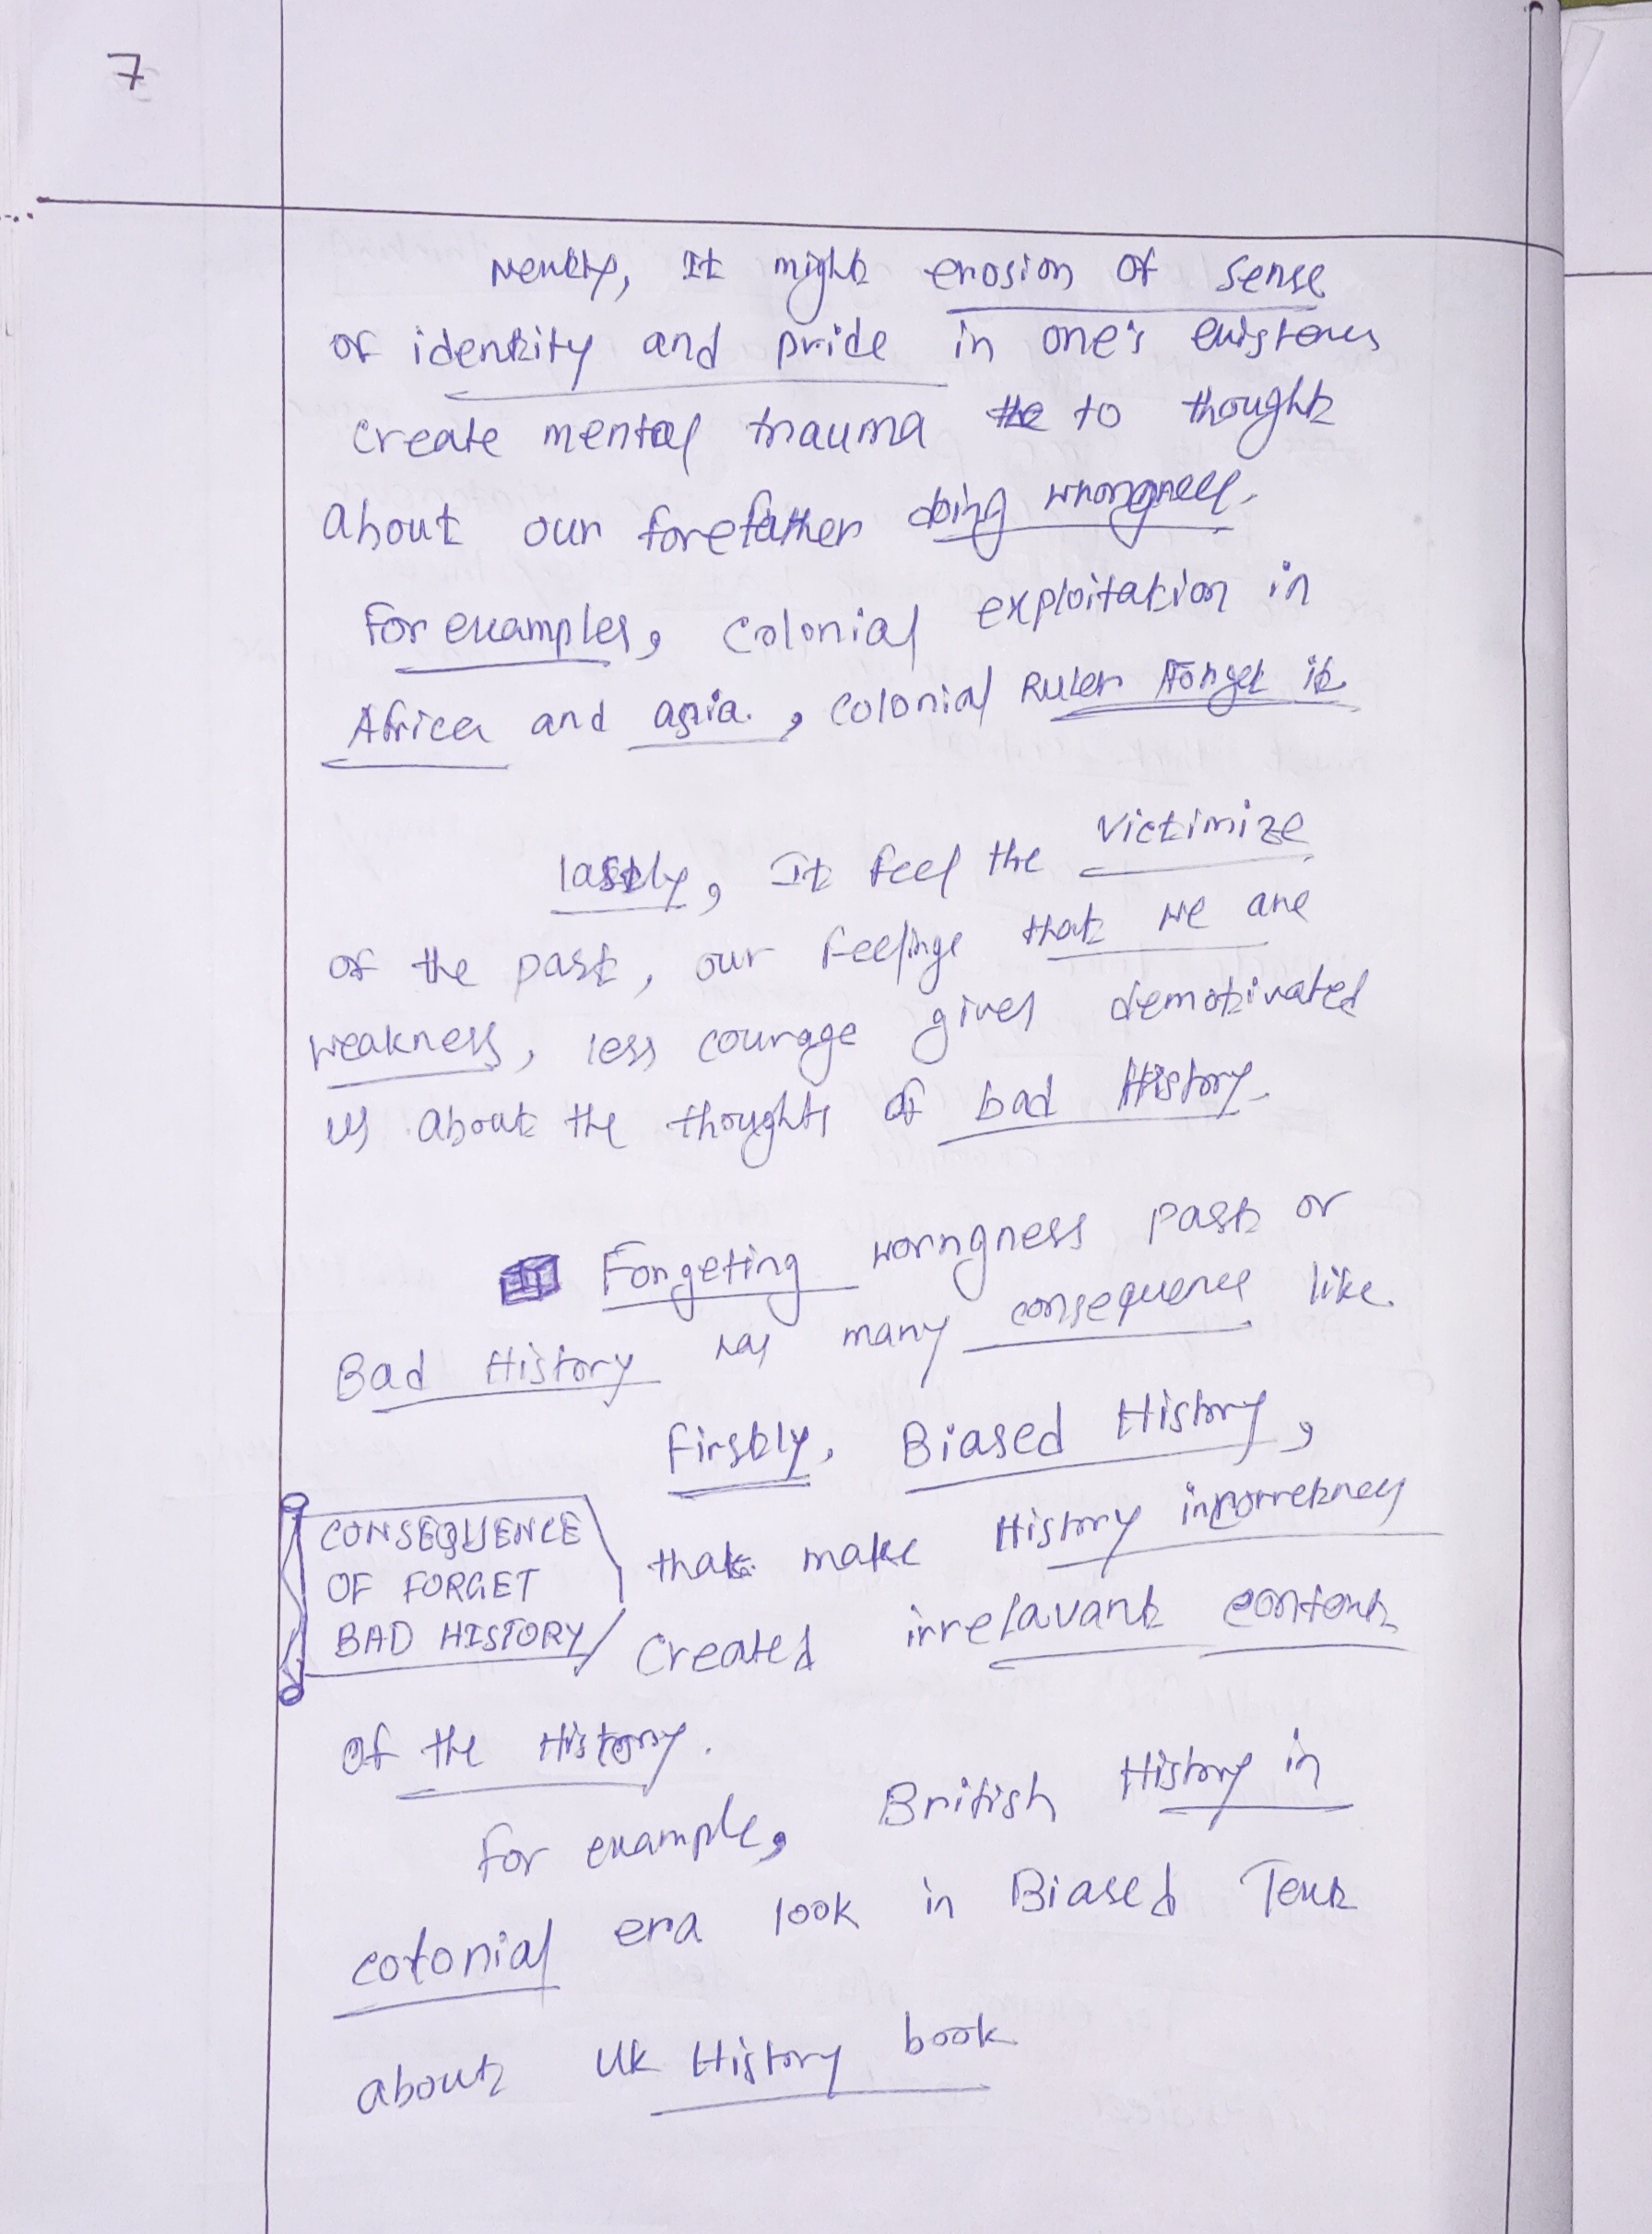 7
Nextly, It might erosion of sense
of identity and pride in one's existences
create mental trauma the to thought
about our forefather doing wrongness.
For examples, colonial exploitation in
Africa and asia., colonial Ruler Forget it
lastly, It feel the victimize
of the past, our feelings that we are
weakness, less courage gives demotivated
us about the thoughts of bad History.
Forgeting worngness past or
Bad History has many consequence like
Firstly, Biased History,
CONSEQUENCE
OF FORGET
BAD HISTORY
that make History incorretness
created irrelavant content
of the History.
For example, British History in
colonial era look in Biased Text
about UK History book